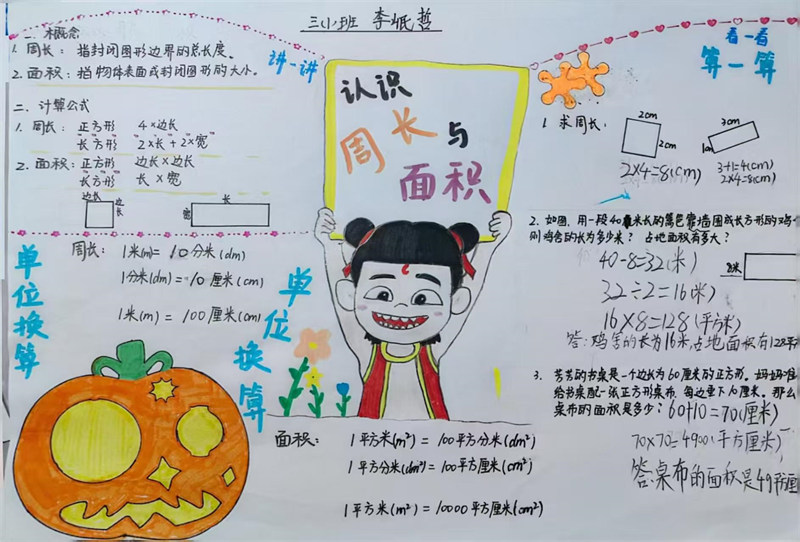 三(1)班 李岷哲
认识
周长与
面积
一、本概念
1. 周长：指封闭图形边界的总长度。
2. 面积：指物体表面或封闭图形的大小。
讲一讲
二、计算公式
1. 周长：正方形 4×边长
"长"方形 "2"×长+"2"×"宽"
2. 面积：正方形 边长×边长
"长"方形 长×宽
边长
边长
长
宽
单位换算
周长：1米(m)=10分米(dm)
1分米(dm)=10厘米(cm)
1米(m)=100厘米(cm)
单位换算
面积：1平方米(m²)=100平方分米(dm²)
1平方分米(dm²)=100平方厘米(cm²)
1平方米(m²)=10000平方厘米(cm²)
看一看
算一算
1. 求周长：
2cm
2cm
2×4=8(cm)
3cm
1cm
3+1=4(cm)
2×4=8(cm)
2. 如图，用一段40米长的篱笆靠墙围成长方形的鸡
则鸡舍的长为多少米？占地面积有多大？
40-8=32(米)
32÷2=16(米)
16×8=128(平方米)
答：鸡舍的长为16米，占地面积有128平
米
3. 芳芳的书桌是一个边长为60厘米的正方形。妈妈准
给书桌配一张正方形桌布，每边垂下10厘米。那么
桌布的面积是多少：60+10=70(厘米)
70×70=4900(平方厘米)
答：桌布的面积是49平方厘